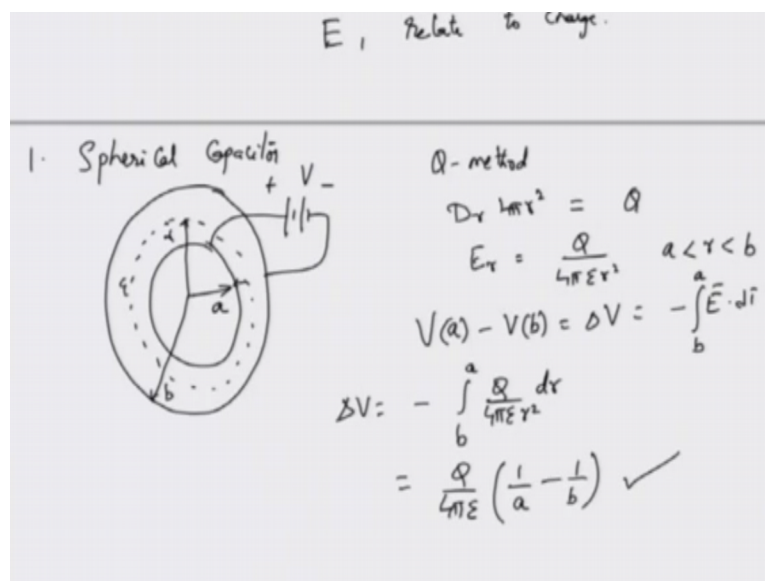 E, Relate to charge.
1. Spherical Capacitor
+ V -
r
ε
a
b
Q-method
Dr 4πr² = Q
Er = Q/4πεr² a<r<b
V(a) - V(b) = ΔV = -∫_b^a Ē·dl̄
ΔV = - ∫_b^a Q/4πεr² dr
= Q/4πε (1/a - 1/b) ✓